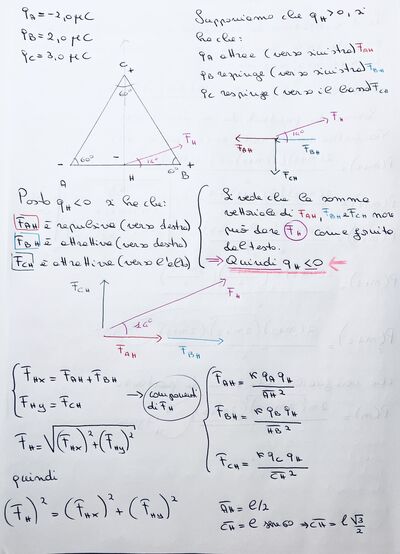 qA = -2,0 μC
qB = 2,0 μC
qC = 3,0 μC
C +
60°
60°
60°
14°
F̅H
-
- +
A H B
Supponiamo che qH > 0, si
ha che:
qA attrae (verso sinistra) F̅AH
qB respinge (verso sinistra) F̅BH
qC respinge (verso il basso) F̅CH
F̅H
14°
F̅AH F̅BH
F̅CH
Posto qH < 0 si ha che:
F̅AH è repulsiva (verso destra)
F̅BH è attrattiva (verso destra)
F̅CH è attrattiva (verso l'alto)
Si vede che la somma
vettoriale di F̅AH, F̅BH e F̅CH non
può dare F̅H come fornito
dal testo.
⇒ Quindi qH < 0
F̅CH
F̅H
14°
F̅AH F̅BH
F̅Hx = F̅AH + F̅BH
F̅Hy = F̅CH
→ componenti
di F̅H
F̅H = √(F̅Hx)² + (F̅Hy)²
quindi
(F̅H)² = (F̅Hx)² + (F̅Hy)²
F̅AH = K qA qH / A̅H̅²
F̅BH = K qB qH / H̅B̅²
F̅CH = K qC qH / C̅H̅²
A̅H̅ = l/2
C̅H̅ = l sen 60 ⇒ C̅H̅ = l √3/2